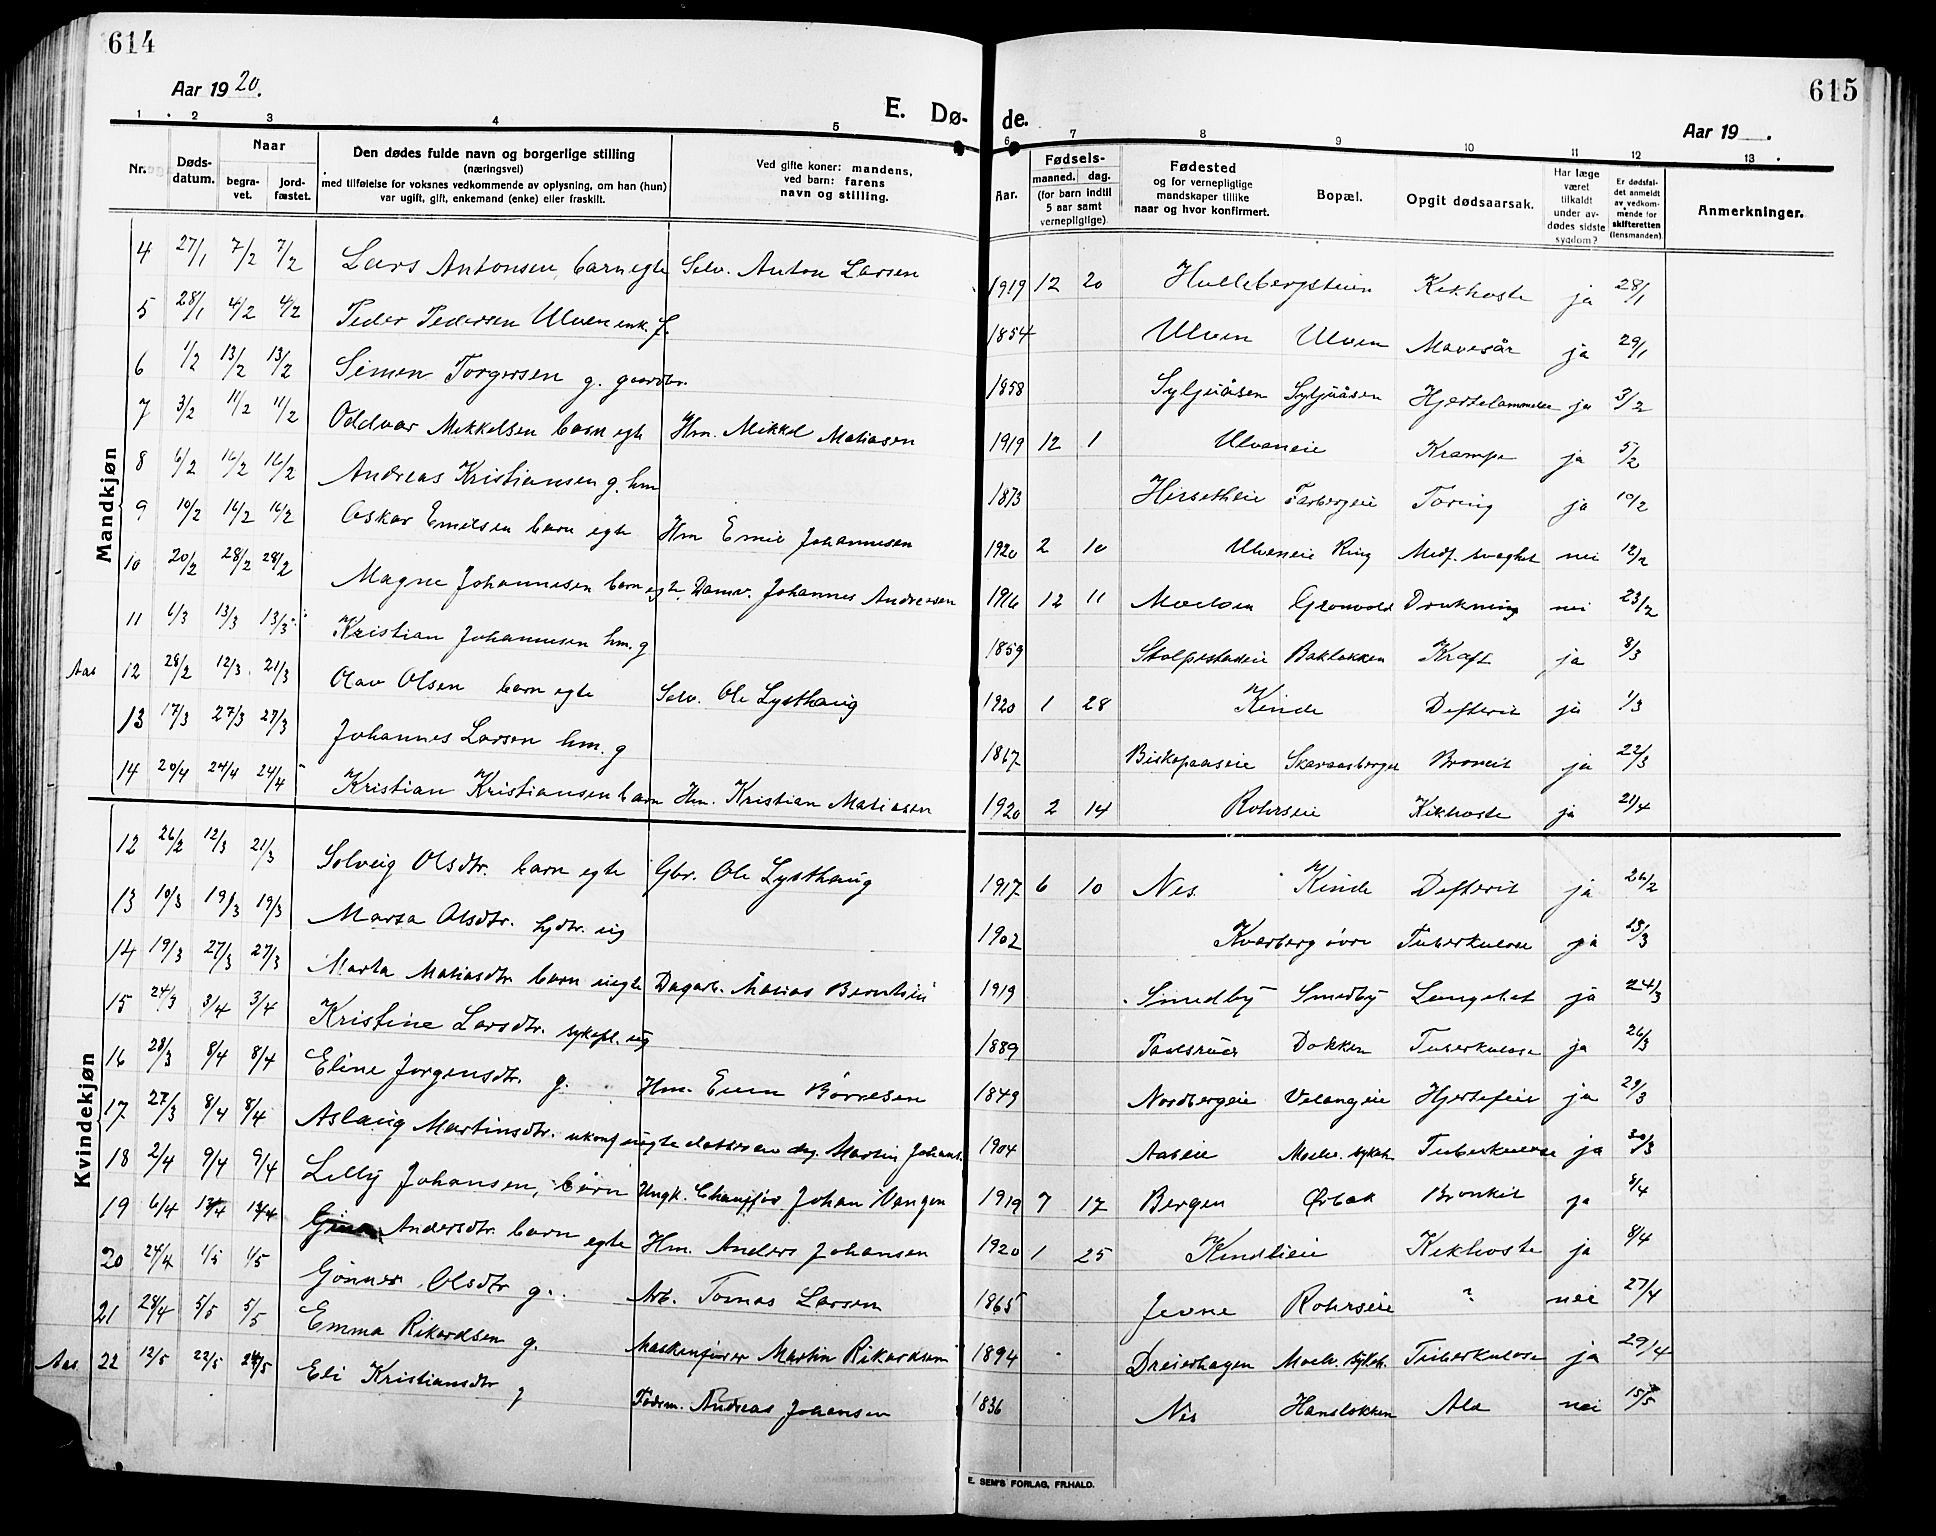 614
615
Aar 1920.
E. Dø-
de.
Aar 19 .
1 2 3 4 5 6 7 8 9 10 11 12 13
Nr.
Døds-
datum.
Naar
begra-
vet.
Jord-
fæstet.
Den dødes fulde navn og borgerlige stilling
(næringsvei)
med tilføielse for voksnes vedkommende av oplysning, om han (hun)
var ugift, gift, enkemand (enke) eller fraskilt.
Ved gifte koner: mandens,
ved barn: farens
navn og stilling.
Aar.
Fødsels-
maaned. dag.
(for barn indtil
5 aar samt
vernepligtige)
Fødested
og for vernepligtige
mandskaper tillike
naar og hvor konfirmert.
Bopæl.
Opgit dødsaarsak.
Har læge
været
tilkaldt
under av-
dødes sidste
sygdom?
Er dødsfal-
det anmeldt
av vedkom-
mende for
skifteretten
(lensmanden)
Anmerkninger.
Mandkjøn
4 27/1 7/2 7/2 Lars Antonsen, barn egte Selv. Anton Larsen 1919 12 20 Kikhoste ja 28/1
5 28/1 4/2 4/2 Peder Pedersen Ulven enk. f. 1854 Ulven Ulven Mavesår ja 29/1
6 1/2 13/2 13/2 Simen Torgersen g. gaardbr. 1858 Syljuåsen Syljuåsen Hjertelammelse ja 3/2
7 3/2 11/2 11/2 Oddvar Mikkelsen barn egte Hm. Mikkel Matiasen 1919 12 1 Ulveneie Krampe ja 5/2
8 6/2 16/2 16/2 Andreas Kristiansen g. hm 1873 Tæring ja 10/2
9 10/2 16/2 16/2 Oskar Emilsen barn egte Hm Emil Johannesen 1920 2 10 Ulveneie Ring Medf. svaghet nei 12/2
10 20/2 28/2 28/2 Magne Johannesen barn egte, Johannes Andersen 1916 12 11 Moelven Grønvold Drukning nei 23/2
11 6/3 13/3 13/3 Kristian Johannesen hm. g 1859 Stolpestadeie Bakløkken Kræft ja 8/3
Aas 12 28/2 12/3 21/3 Olav Olsen barn egte Selv. Ole Lysthaug 1920 1 28 Kinde Difterit ja 1/3
13 17/3 27/3 27/3 Johannes Larsen hm. g 1867 Biskopaaseie Skaraasberget ja 22/3
14 20/4 24/4 24/4 Kristian Kristiansen barn Hm. Kristian Matiasen 1920 2 14 Rohrseie Kikhoste ja 21/4
Kvindekjøn
12 26/2 12/3 21/3 Solveig Olsdtr. barn egte Gbr. Ole Lysthaug 1917 6 10 Nes Kinde Difterit ja 26/2
13 10/3 19/3 19/3 Marta Olsdtr. hydtr. ug 1902 Kværberg øvre Tuberkulose ja 13/3
14 19/3 27/3 27/3 Marta Matiasdtr. barn uegte Dagarb. Matias 1919 Smedby Smedby ja 24/3
15 24/3 3/4 3/4 Kristine Larsdtr. sykepl. ug 1889 Dokken Tuberkulose ja 26/3
16 28/3 8/4 8/4 Eline Jørgensdtr. g. Hm. Even Børresen 1849 Nordbergeie Hjertefeil ja 29/3
17 27/3 8/4 8/4 Aslaug Martinsdtr. ukonf uegte datter av Martin Johans. 1904 Aaseie Moelv. sykeh. Tuberkulose ja 30/3
18 2/4 9/4 9/4 Lilly Johansen, barn Ungk. Chauffør Johan Vangen 1919 7 17 Bergen Ørbæk Bronkit ja 8/4
19 6/4 13/4 13/4 Gina Andersdtr. barn egte Hm. Anders Johansen 1920 1 25 Kindlieie Kikhoste ja 8/4
20 24/4 1/5 1/5 Olsdtr g. Arb. Tomas Larsen 1865 Jevne Rohrseie ? nei 27/4
21 28/4 5/5 5/5 Emma Rikardsen g. Martin Rikardsen 1894 Dreierhagen Moelv. sykeh. Tuberkulose ja 29/4
Aas 22 12/5 22/5 Eli Kristiansdtr g Andreas Johansen 1836 Nes Hansløkken Ald nei 15/5
E. SEM'S FORLAG, FR.HALD.